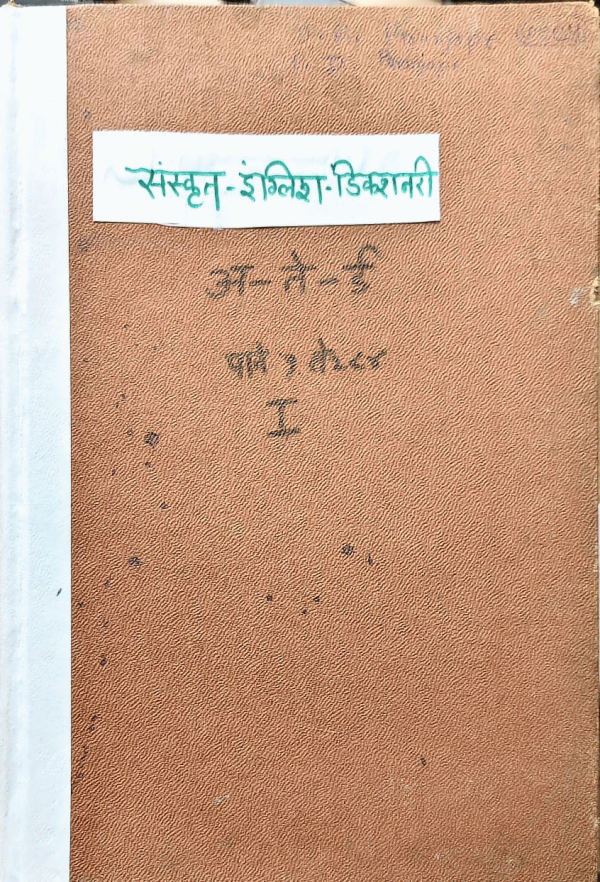 संस्कृत-इंग्लिश-डिक्शनरी
अ-ते-ई
पाने १ ते २८४
I